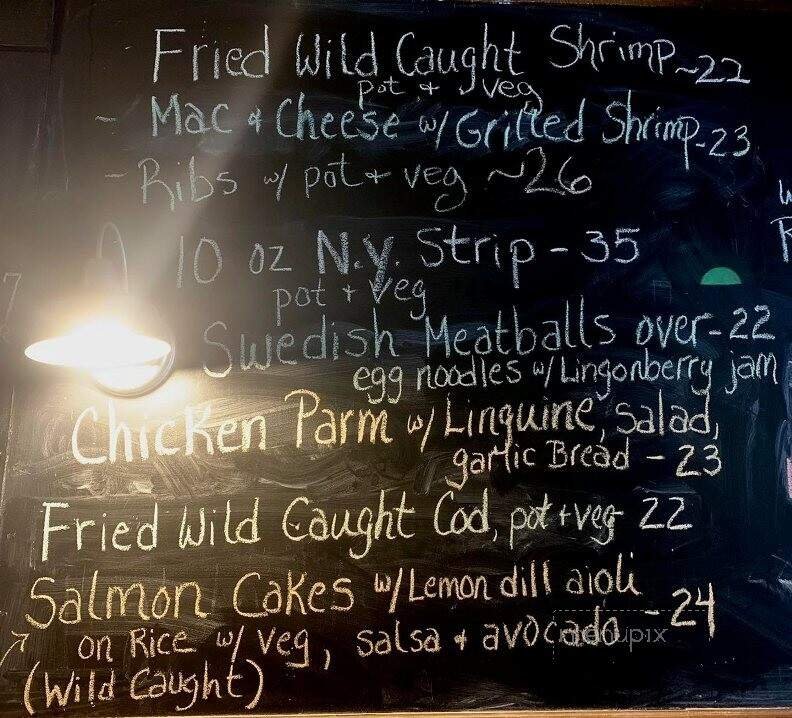 Fried Wild Caught Shrimp ~22
pot + veg
- Mac & Cheese w/ Grilled Shrimp - 23
- Ribs w/ pot + veg ~26
10 oz N.Y. Strip - 35
pot + veg
Swedish Meatballs over - 22
egg noodles w/ Lingonberry jam
Chicken Parm w/ Linguine, salad,
garlic Bread - 23
Fried Wild Caught Cod, pot + veg 22
Salmon Cakes w/ Lemon dill aioli
on Rice w/ veg, salsa + avocado - 24
(Wild Caught)
menupix